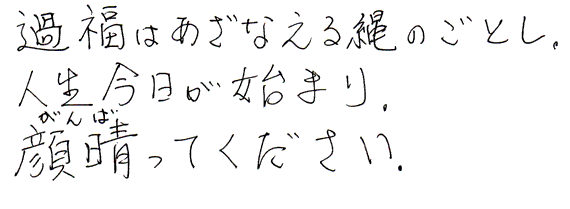 過福はあざなえる縄のごとし。
人生今日が始まり。
がんば
顔晴ってください。